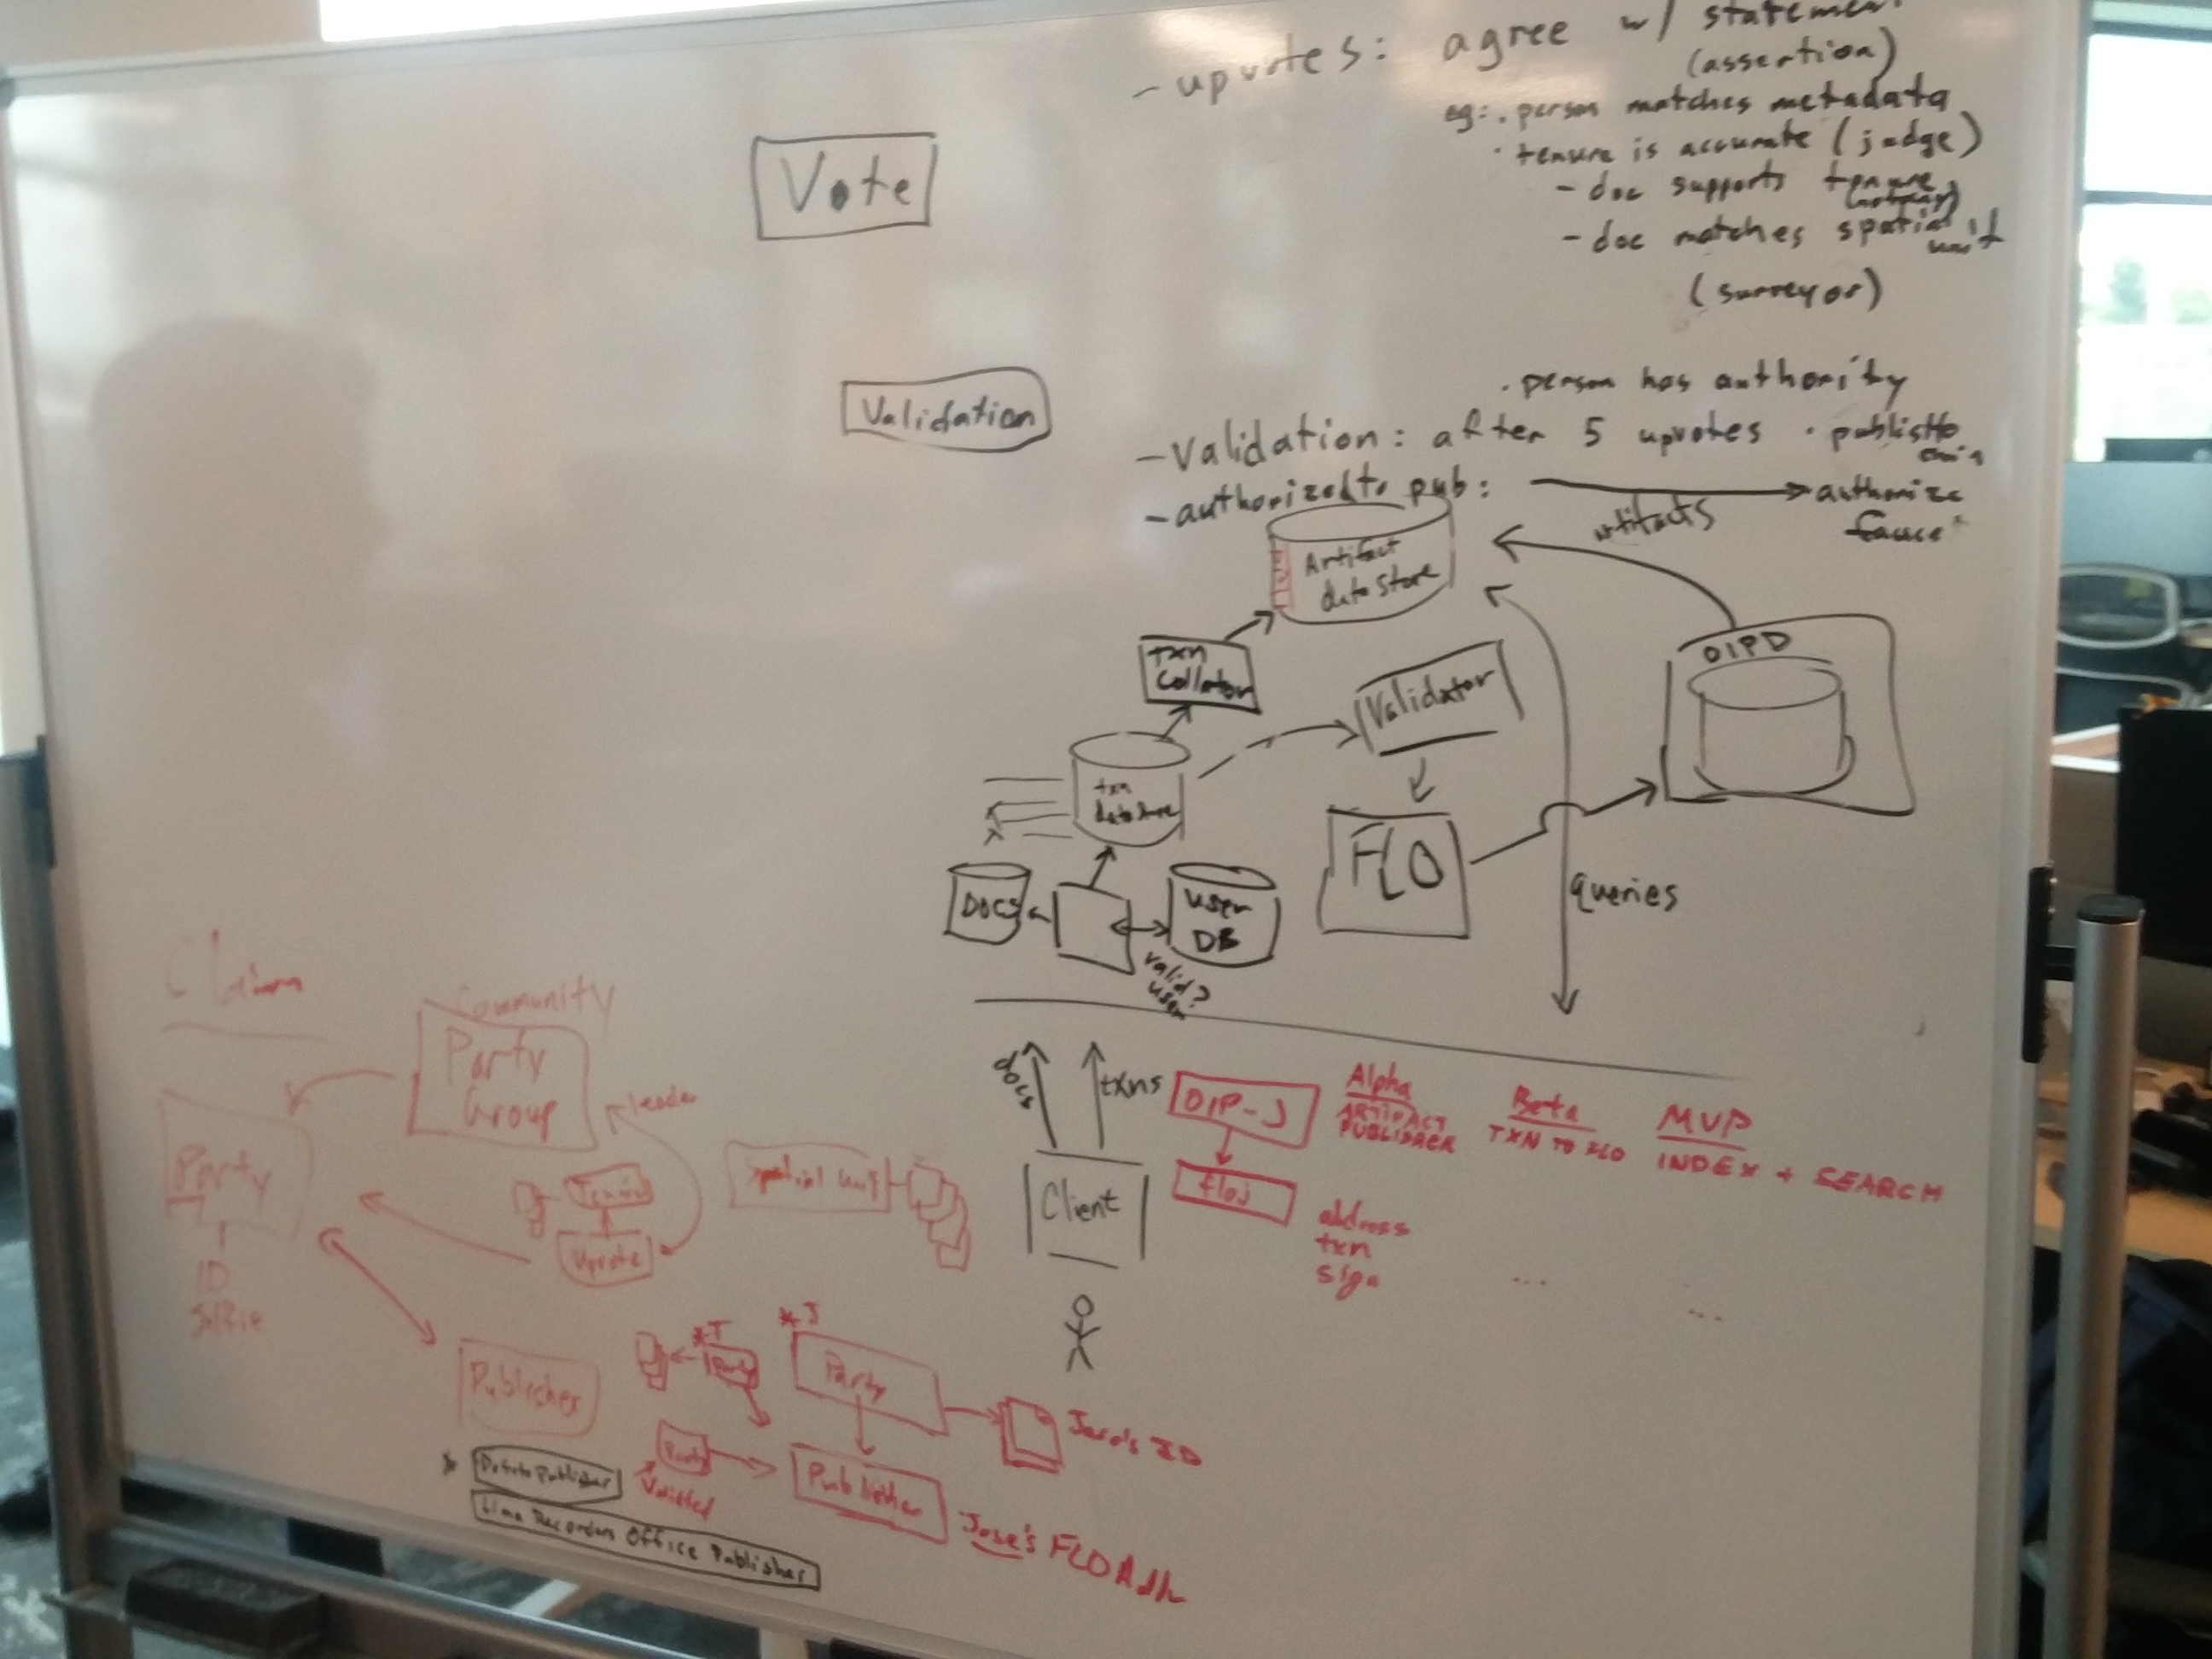 - upvotes: agree w/ statement
(assertion)
eg: . person matches metadata
. tenure is accurate (judge)
- doc supports tenure
(notary)
- doc matches spatial unit
(surveyor)
Vote
Validation
. person has authority
- Validation: after 5 upvotes . publish to
- authorized to pub:
authorize
artifacts
Artifact
data store
OIPD
txn
Collator
Validator
txn
data store
FLO
queries
DOCS
user
DB
valid?
user
Claim
Community
Party
Group
leader
Party
ID
Selfie
Upvote
Spatial Unit
docs
txns
Client
OIP-J
floj
Alpha
ARTIFACT
PUBLISHER
Beta
TXN TO FLO
MVP
INDEX + SEARCH
address
txn
sign
...
...
Publisher
*T
Party
*J
Party
Jose's ID
Party
Publisher
Jose's FLO Addr
Lima Recorders Office Publisher